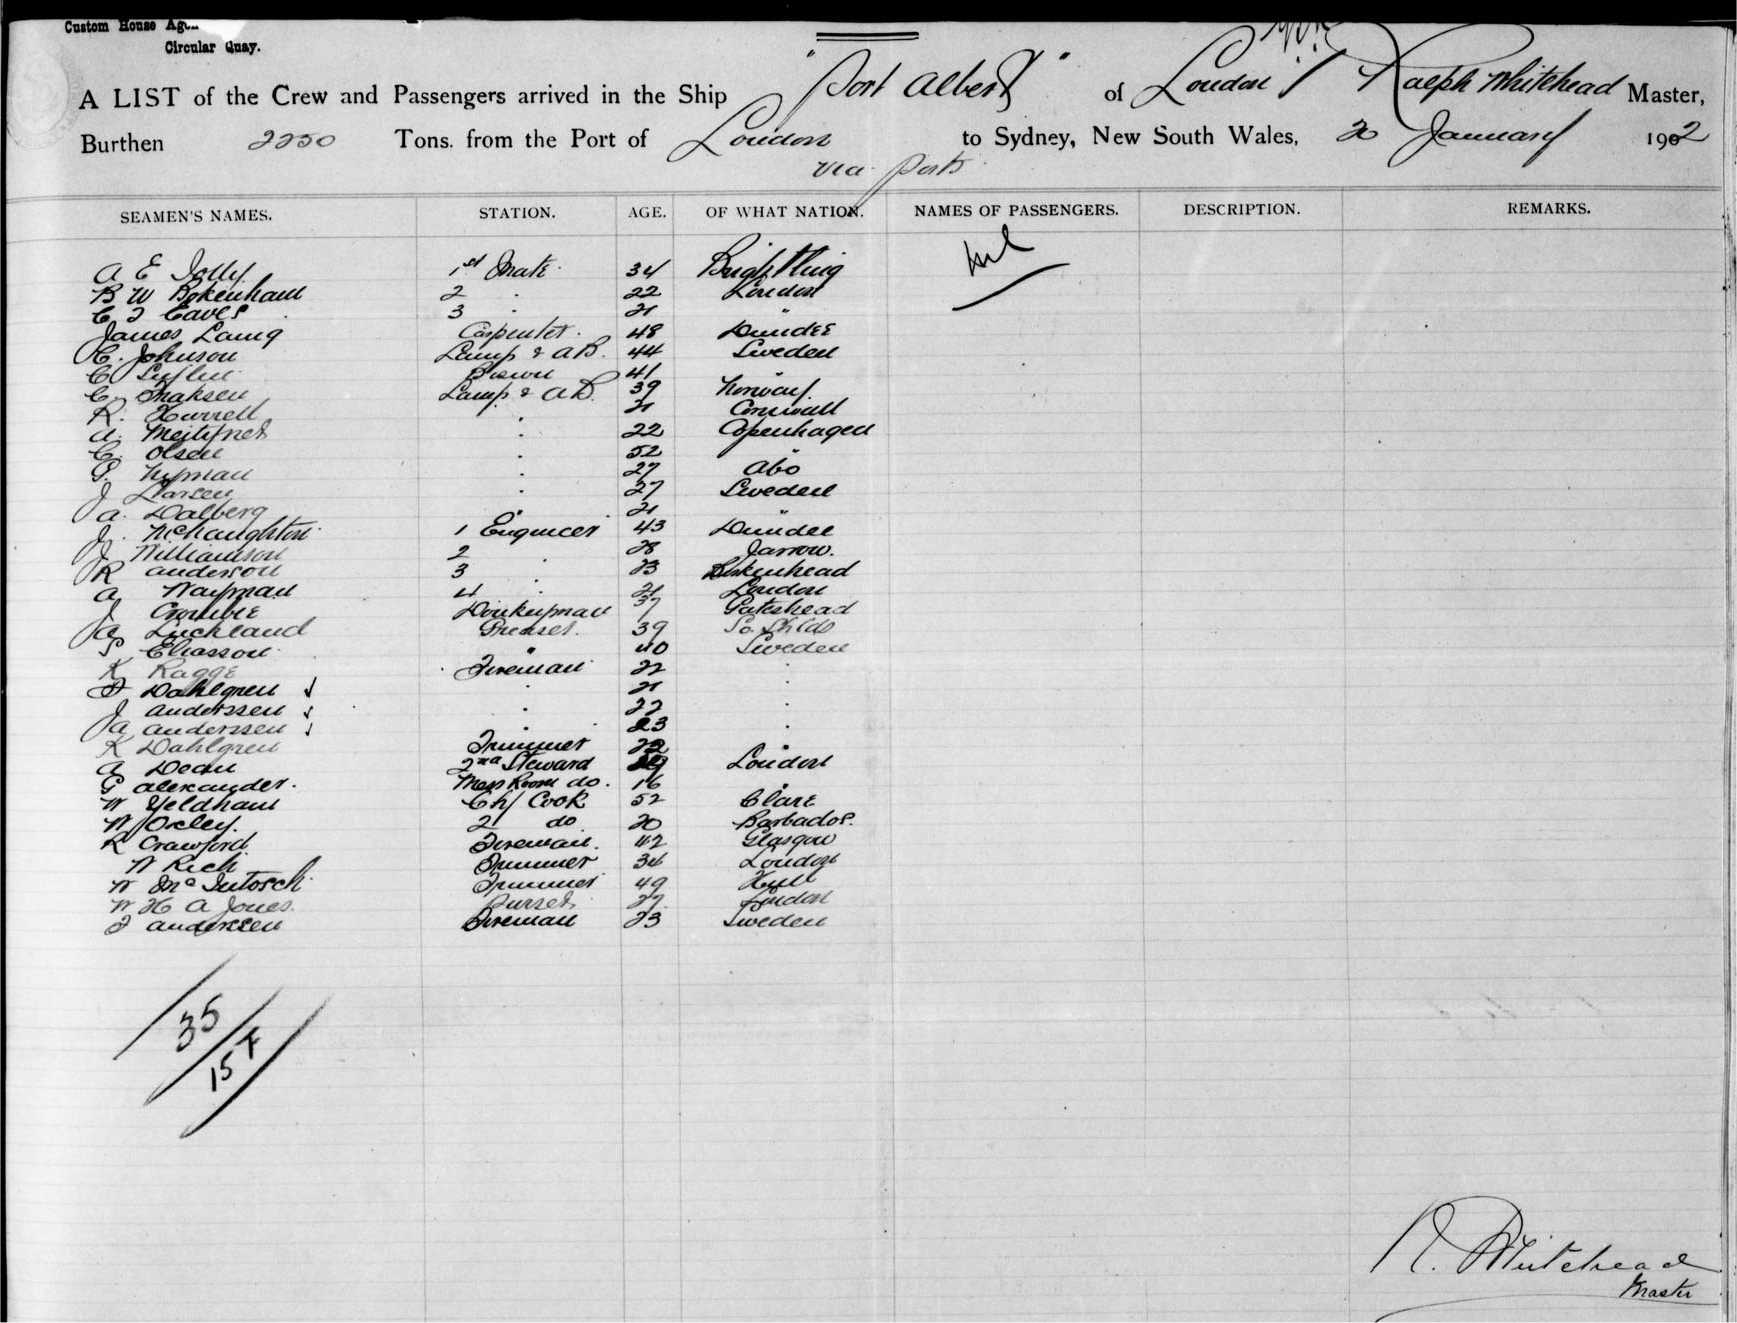 Custom House
Circular Quay.
A LIST of the Crew and Passengers arrived in the Ship "Port Albert" of London Ralph Whitehead Master,
Burthen 2250 Tons. from the Port of London to Sydney, New South Wales, 20 January 1902
via ports
SEAMEN'S NAMES. STATION. AGE. OF WHAT NATION. NAMES OF PASSENGERS. DESCRIPTION. REMARKS.
nil
A E Jolly 1st Mate 34
B W Bokenham 2 " 22 London
C J Eaves 3 " 21 "
James Laing Carpenter 48 Dundee
C. Johnson Lamp & AB. 44 Sweden
C 41 "
C. Lamp & AB. 39 Norway
R. Hurrell " 21 Cornwall
A. " 22 Copenhagen
C. Olsen " 52 "
G. Nyman " 27 Abo
J Larsen " 27 Sweden
A. Dalberg " 21 "
J. McNaughton 1 Engineer 43 Dundee
J Williamson 2 " 28 Jarrow.
R Anderson 3 " 23 Birkenhead
A Wayman 4 " 21 London
J Crombie Donkeyman 37 Gateshead
A Luckland Greaser. 39 So. Shields
S Eliasson " 40 Sweden
K Ragge Fireman 22 "
F Dahlgren " 21 "
J Anderssen " 22 "
A Anderssen " 23 "
K Dahlgren Trimmer 22 "
A Dean 2nd Steward London
G Alexander. Mess Room do. 16 "
W Yeldham Chf Cook 52 Clare
W Oxley. 2 do 20 Barbados.
R Crawford Fireman. 42 Glasgow
W Rich Trimmer 34 London
W McIntosch Trimmer 49 Hull
W H A Jones. Purser 27 London
F Anderssen Fireman 23 Sweden
35
15 F
R. Whitehead
Master